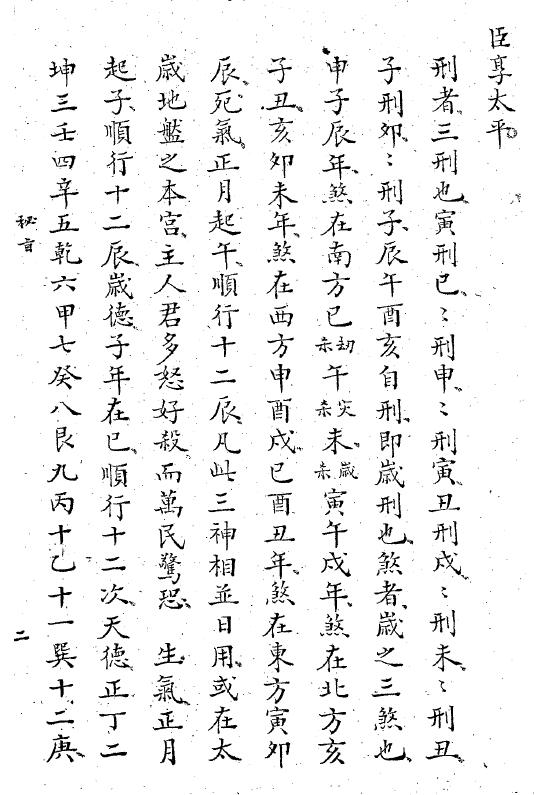 臣享太平
刑者三刑也寅刑巳〻刑申〻刑寅丑刑戌〻刑未〻刑丑
子刑卯〻刑子辰午酉亥自刑即歲刑也煞者歲之三煞也
申子辰年煞在南方巳劫杀午灾杀未歲杀寅午戌年煞在北方亥
子丑亥卯未年煞在西方申酉戌巳酉丑年煞在東方寅卯
辰死氣正月起午順行十二辰凡此三神相並日用或在太
歲地盤之本宮主人君多怒好殺而萬民驚恐 生氣正月
起子順行十二辰歲德子年在巳順行十二次天德正丁二
坤三壬四辛五乾六甲七癸八艮九丙十乙十一巽十二庚
秘旨
二